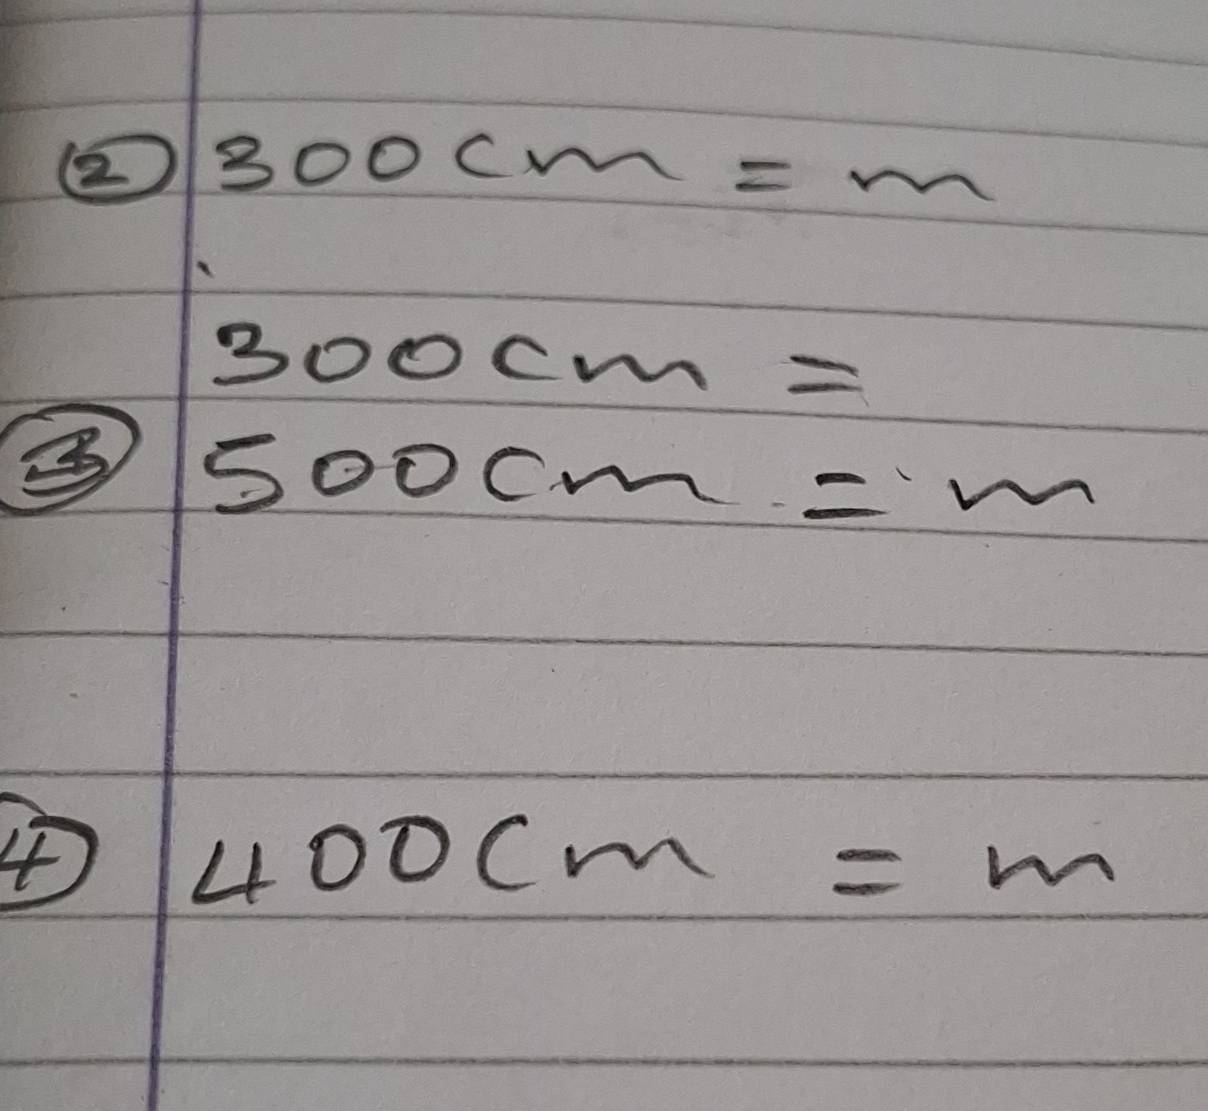 ② 300cm = m
300cm =
③ 500cm = m
④ 400cm = m